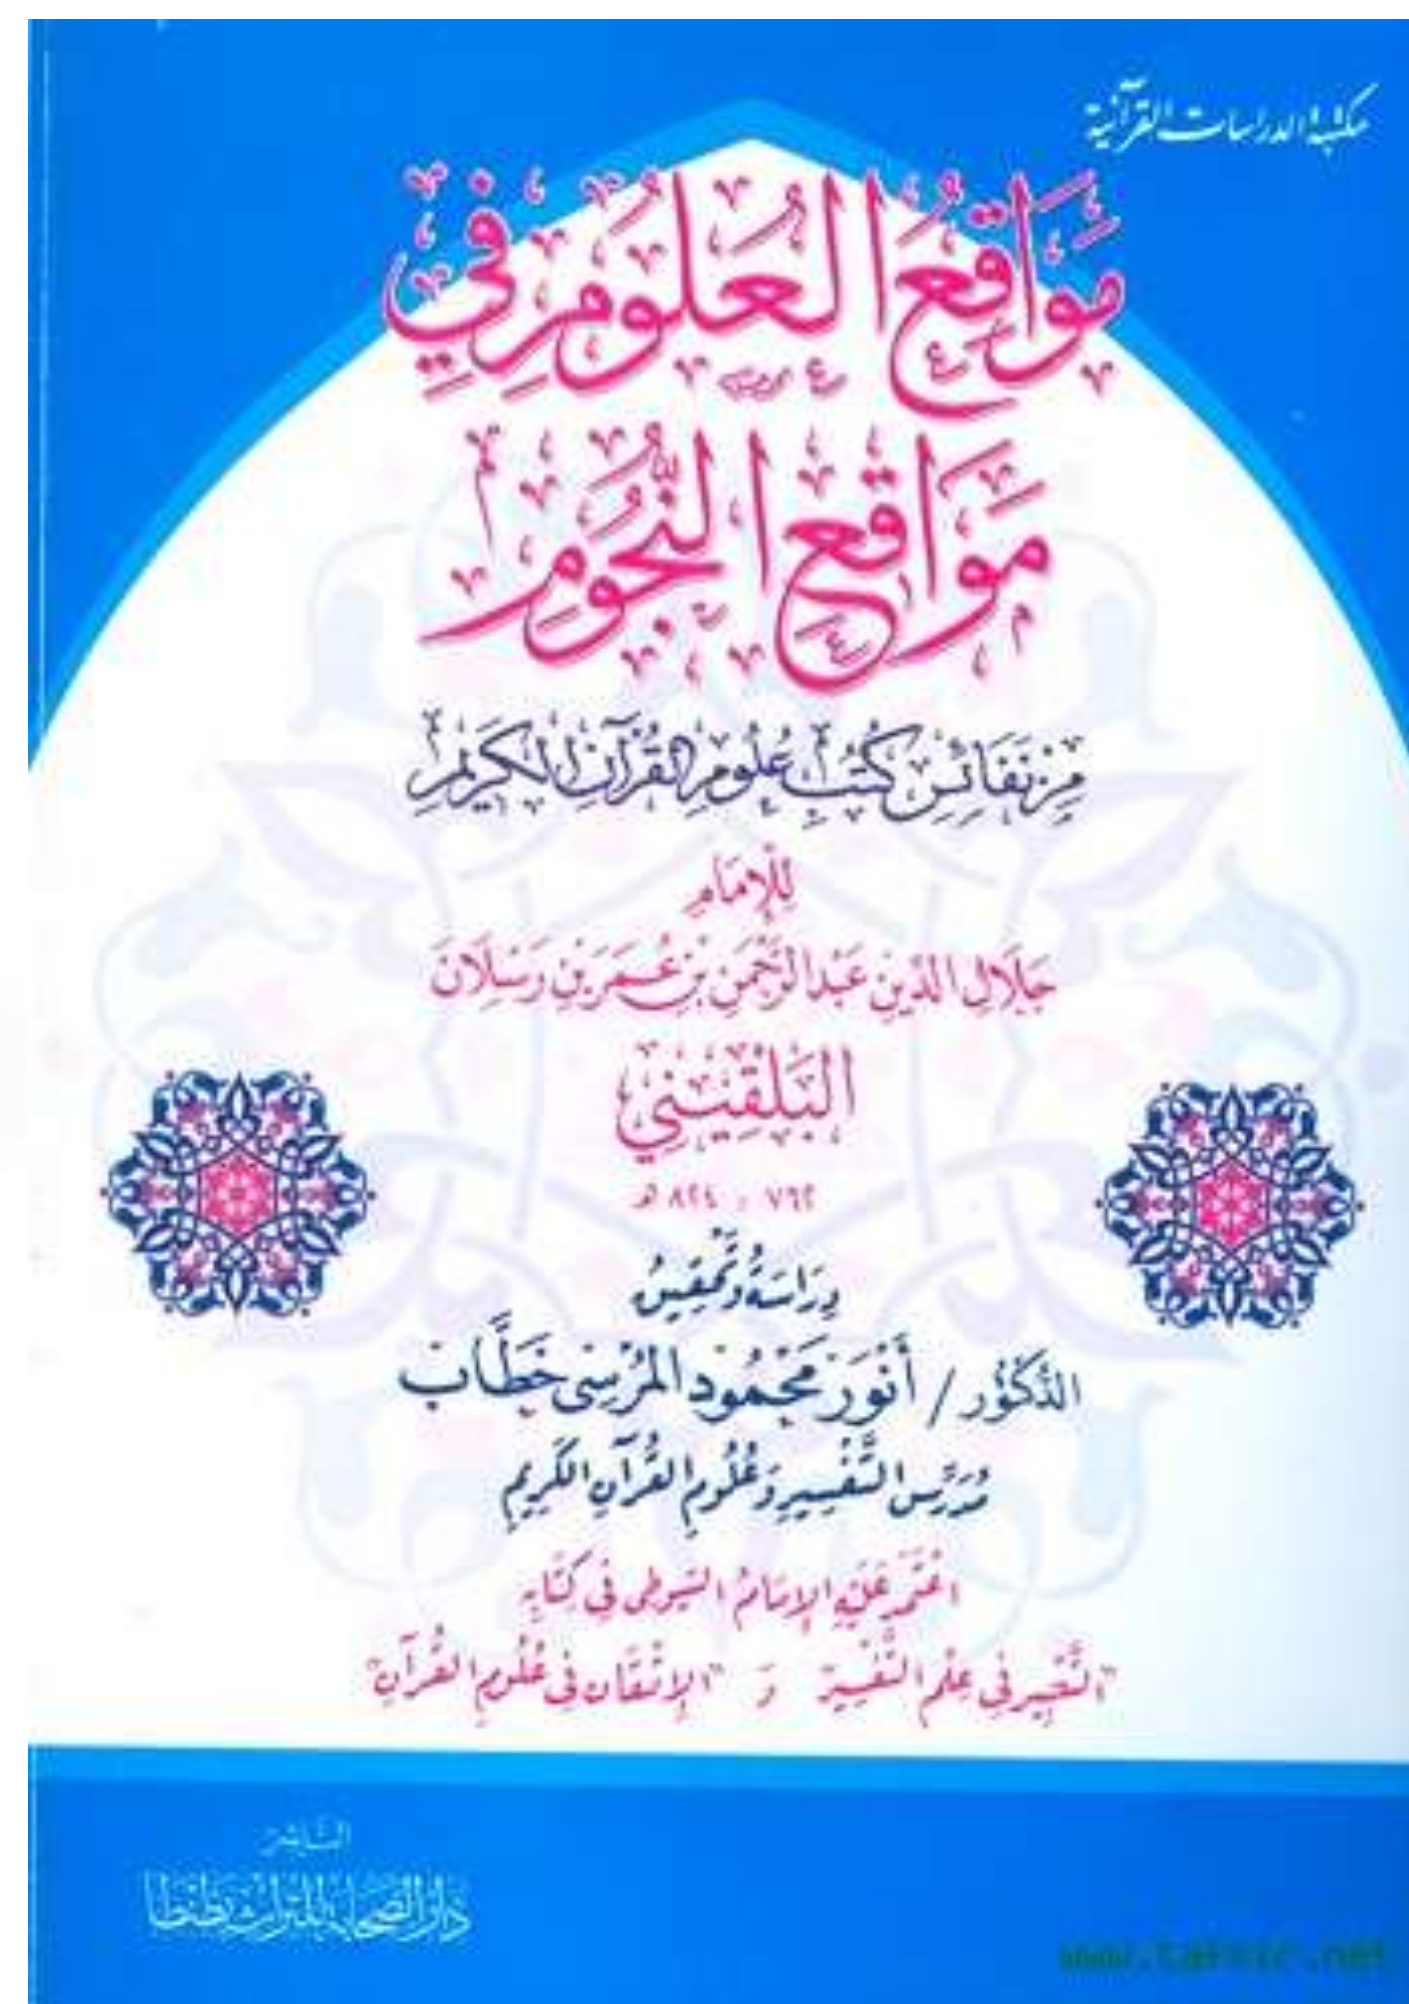 مكتبة الدراسات القرآنية
مَوَاقِعُ العُلُومِ فِي
مَوَاقِعِ النُّجُومِ
مِنْ نَفَائِسِ كُتُبِ عُلُومِ القُرْآنِ الكَرِيمِ
لِلإِمَامِ
جَلَالِ الدِّينِ عَبْدِ الرَّحْمَنِ بْنِ عُمَرَ بْنِ رَسْلَانَ
البُلْقِينِي
٧٦٢ : ٨٢٤ هـ
دِرَاسَةُ وَتَحْقِيقُ
الدُّكْتُور / أَنْوَر مَحْمُود المُرْسِي خَطَّاب
مُدَرِّس التَّفْسِيرِ وَعُلُومِ القُرْآنِ الكَرِيمِ
اعْتَمَدَ عَلَيْهِ الإِمَامُ السُّيُوطِي فِي كِتَابِهِ
"التَّحْبِيرِ فِي عِلْمِ التَّفْسِيرِ" وَ "الإِتْقَان فِي عُلُومِ القُرْآنِ"
الناشر
دَارُ الصَّحَابَة لِلتُّرَاث بِطَنْطَا
www.tafsir.net